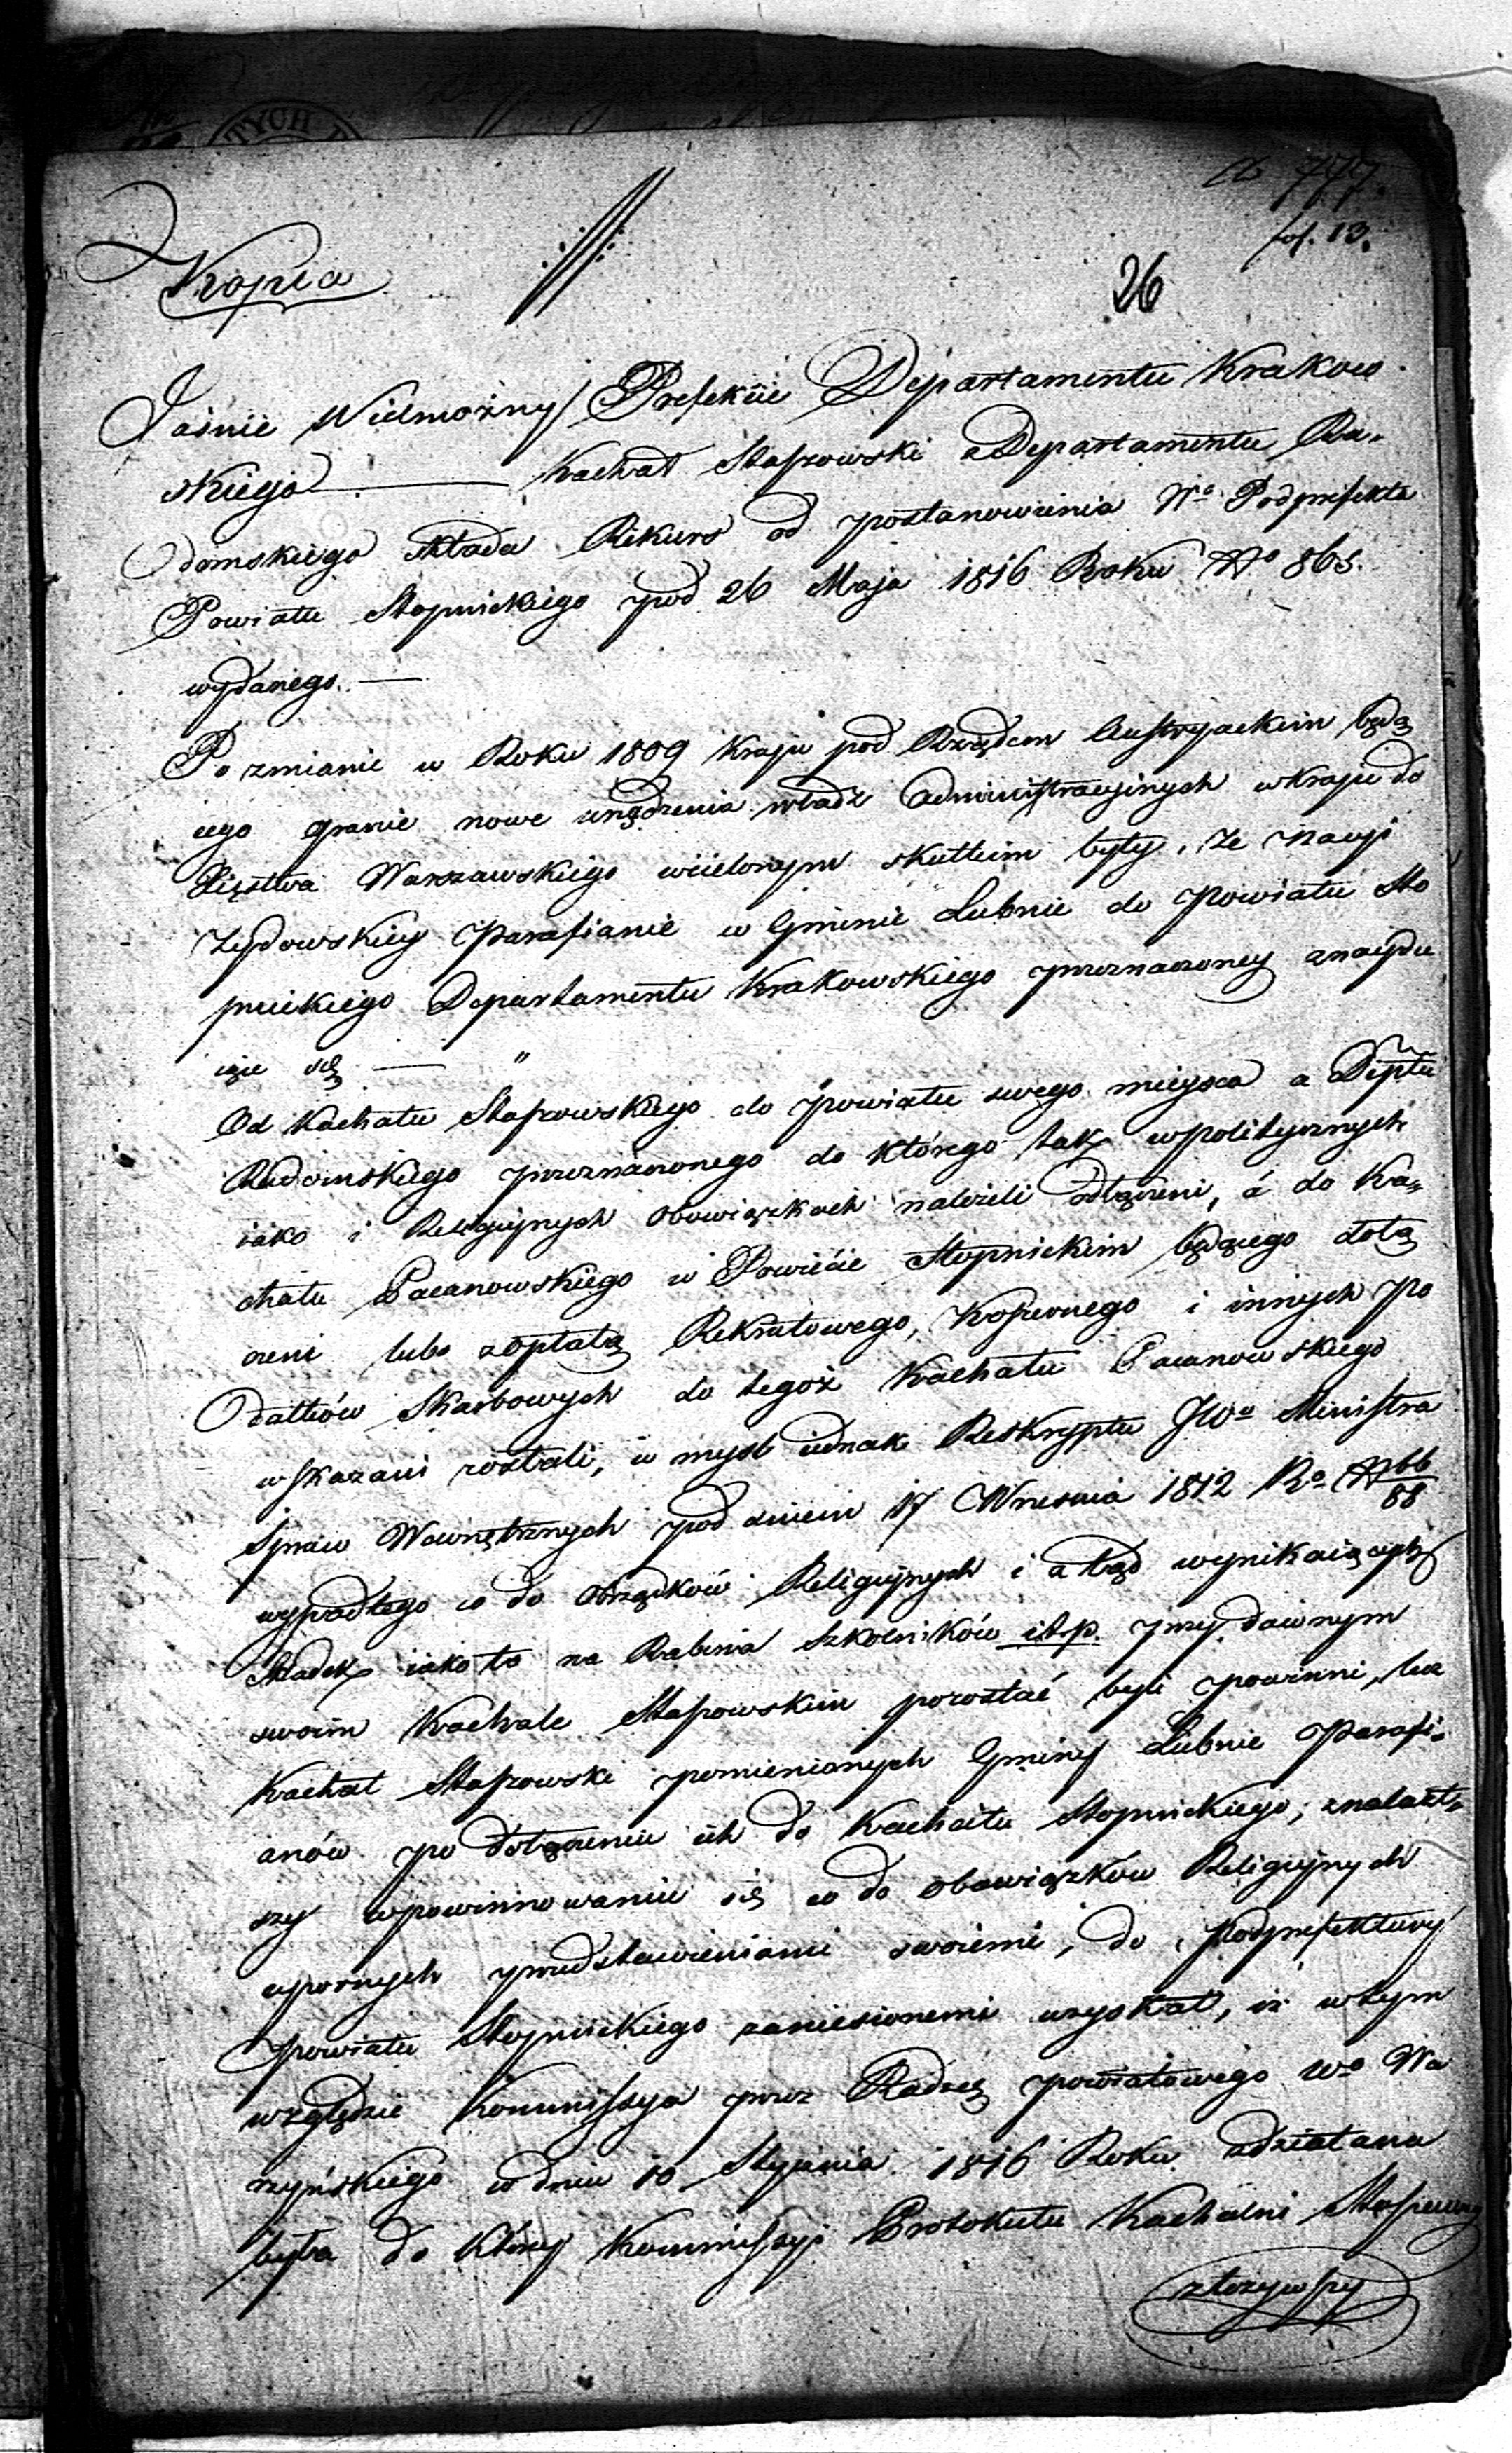 ad 777.
fol. 13.
Kopia
26
Jaśnie Wielmożny Prefekcie Departamentu Krakow
skiego Kachał Staszowski z Departamentu Ra-
domskiego składa Rekurs od postanowienia Wo Podprefekta
Powiatu Stopnickiego pod 26 Maja 1816 Roku No 865.
wydanego. —
Po zmianie w Roku 1809 Kraju pod Rządem Austryackim będą
cego granic nowe urządzenia władz administracyjnych w kraju do
Xięstwa Warszawskiego wcielonym skutkiem były, że Nacyi
Żydowskiey Parafianie w Gminie Łubnie do Powiatu Sto
pnickiego Departamentu Krakowskiego przeznaczoney znaydu
iące się — "
Od Kachału Staszowskiego do powiatu swego mieysca a Deptu
Radomskiego przeznaczonego do którego tak w politycznych
iako i Religiynych obowiązkach należeli odłączeni, á do Ka-
chału Pacanowskiego w Powiecie Stopnickim będącego dołą
czeni lubo z opłatą Rekrutowego, Koszernego i innych po
datków Skarbowych do tegoż Kachału Pacanowskiego
wskazani zostali, w myśl iednak Reskryptu JWo Ministra
Spraw Wewnętrznych pod dniem 17 Września 1812 Ro N 66/88
wypadłego co do obrządków Religiynych i ztąd wynikaiących
składek iako to na Rabina Szkolników itp. przy dawnym
swoim Kachale Staszowskim pozostać byli powinni, lecz
Kachał Staszowski pomienionych Gminy Łubnie Parafi-
anów po dołączeniu ich do Kachału Stopnickiego, znalazł-
szy w powinnowaniu się co do obowiązków Religiynych
upornych przedstawieniami swoiemi, do Podprefektury
Powiatu Stopnickiego zaniesionemi uzyskał, iż w tym
względzie Kommissya przez Radzcę powiatowego Wo Wa
rzyńskiego w dniu 10 Stycznia 1816 Roku zdziałana
była do któréy Kommissyi Protokułu Kachalni
złożywszy